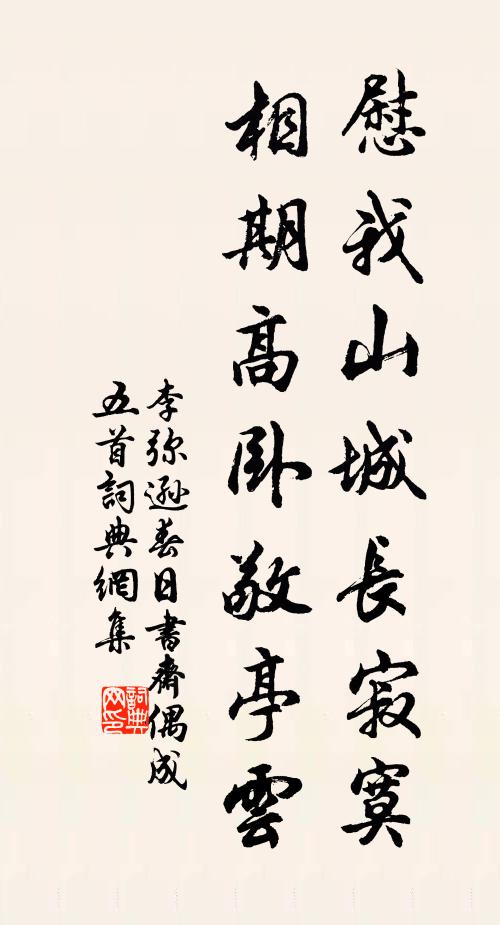 慰我山城長寂寞
相期高卧敬亭雲
李弥遜春日書齋偶成
五首詞典網集
詞典網印